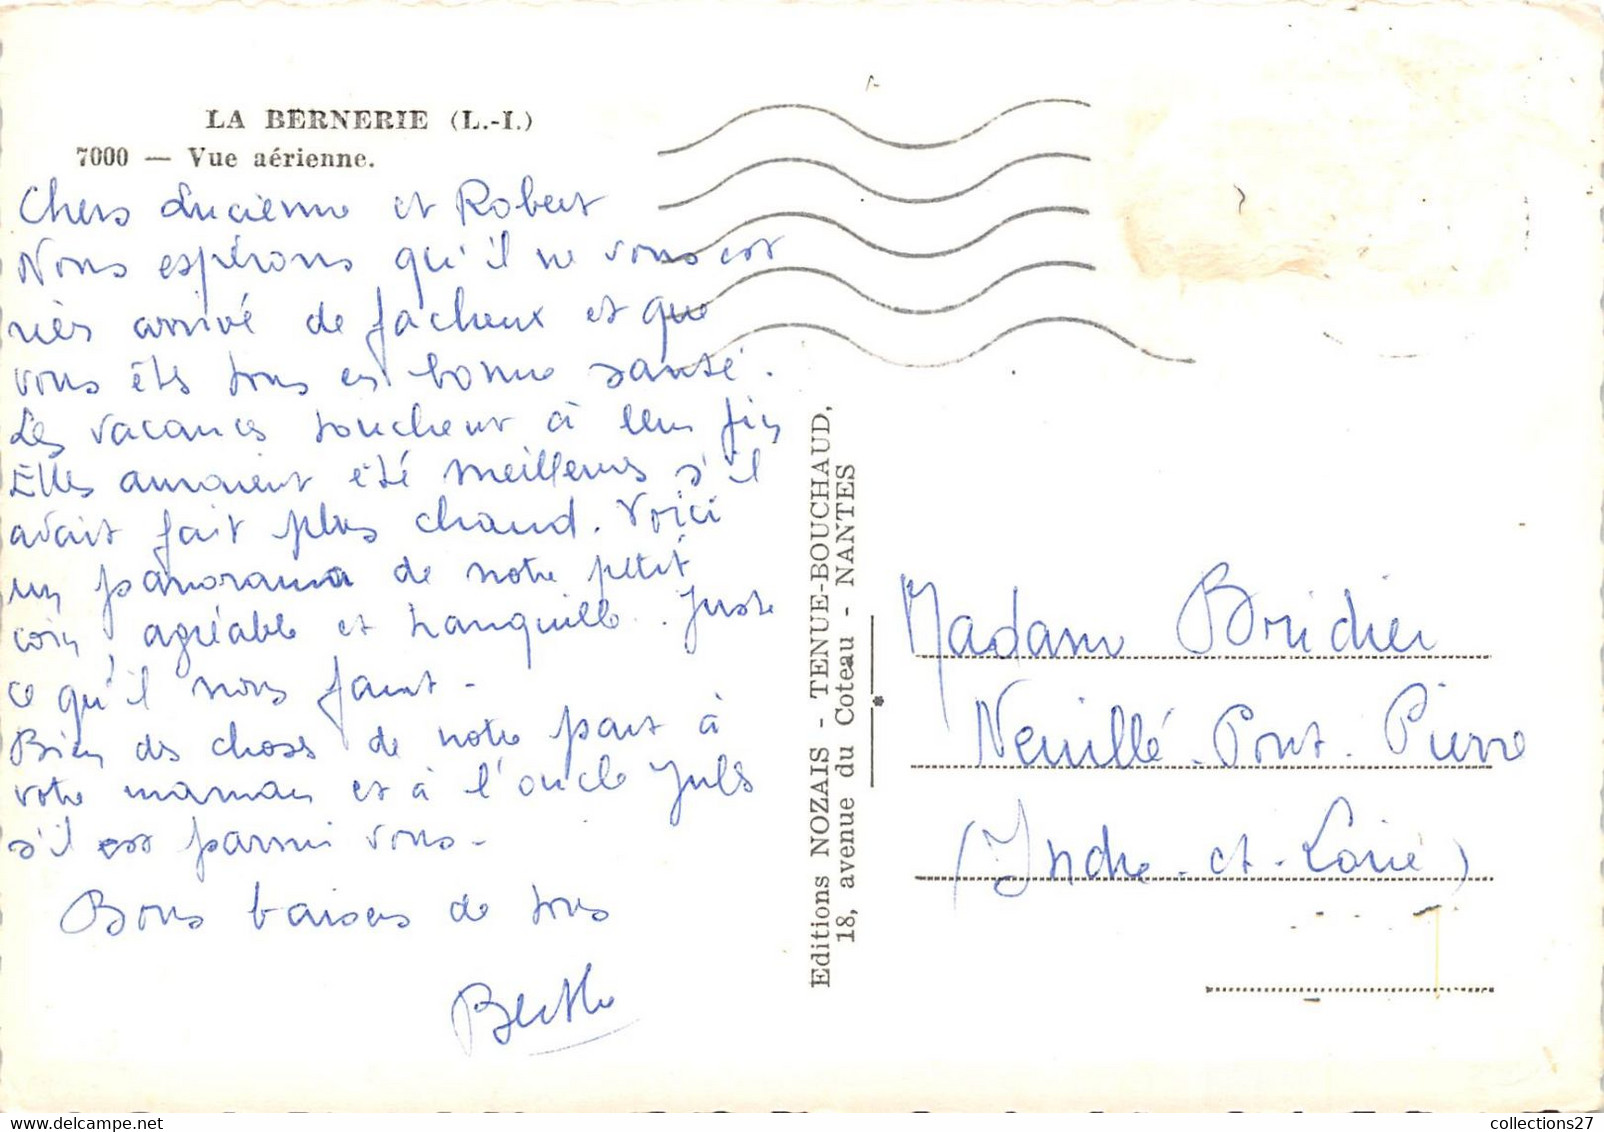 LA BERNERIE (L.-I.)
7000 — Vue aérienne.
Chers Lucienne et Robert
Nous espérons qu'il ne vous est
rien arrivé de facheux et que
vous êtes tous en bonne santé.
Les vacances touchent à leur fin
Elles auraient été meilleures s'il
avait fait plus chaud. Voici
un panorama de notre petit
coin agréable et tranquille. Juste
ce qu'il nous faut -
Bien des choses de notre part à
votre maman et à l'oncle Jules
s'il est parmi vous -
Bons baisers de tous
Berthe
Editions NOZAIS - TENUE-BOUCHAUD,
18, avenue du Coteau - NANTES
Madame Bridier
Neuillé-Pont-Pierre
(Indre-et-Loire)
collections27